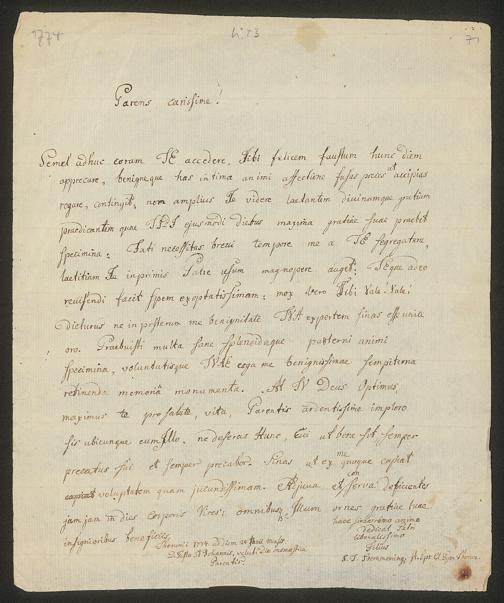 1774
71
Parens carissime!
Semel adhuc coram TE accedere, Tibi felicem faustum hunc diem
apprecare, benigneque has intima animi affectione fusas preces ut accipias
rogare, contingit, non amplius Te videre laetantem divinamque
praedicantem quae TIBI ejusmodi dictus maxima gratiae suae praebet
specimina: Fati necessitas brevi tempore me a TE segregatum,
laetitiam Tu inprimis Patre magnopere auget: TEque adeo
revisendi facit spem exoptatissimam: mox vero Tibi Vale! Vale!
dicturus ne in posterum me benignitate TUA expertem sinas esse unice
oro. Praebuisti multa sane splendidaque paterni animi
specimina, voluntatisque TUAE erga me benignissimae sempiterna
retinenda memoria monumenta. At TU Deus Optimus,
maximus te pro salute, vita, Parentis ardentissime imploro
sis ubicunque cum Illo, ne deseras Hunc, Cui ut bene sit semper
precatus fui et semper precabor. Sinas ut ex me quoque capiat
voluptatem quam jucundissimam. Adjuva et conserva deficientes
jam jam in dies corporis Vires: omnibusq Illum ornes gratiae tuae
insignioribus beneficiis.
haec sincero animo
dedicat Patri
liberalissimo
Filius
Thorunii 1774 ad diem 24
die Festo St Johannis, veluti die onomastica
Parentis.